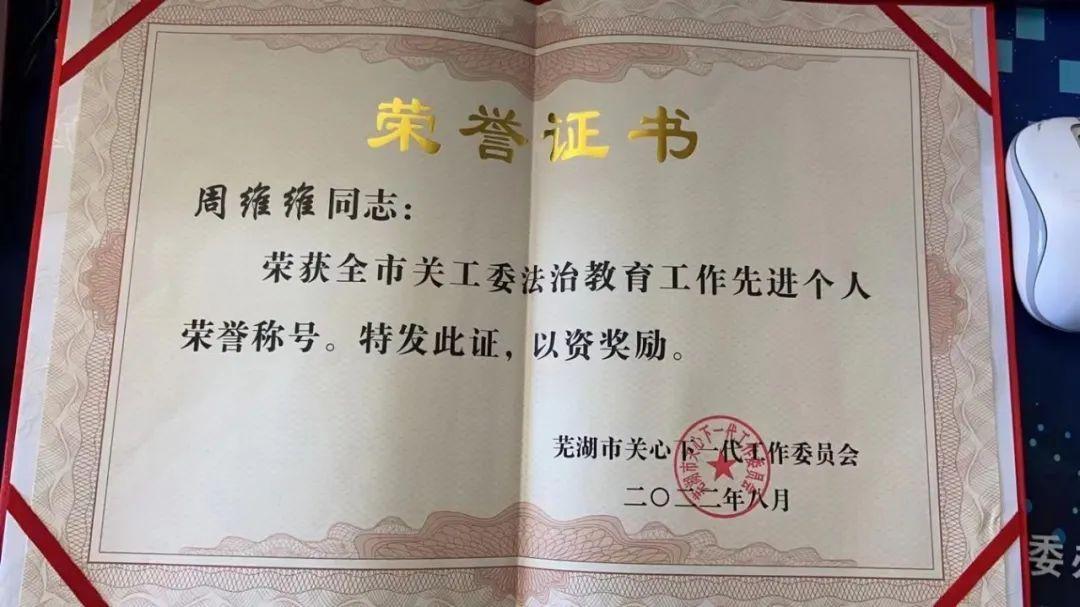 荣誉证书
周维维同志：
荣获全市关工委法治教育工作先进个人
荣誉称号。特发此证，以资奖励。
芜湖市关心下一代工作委员会
二〇二二年八月
芜湖市关心下一代工作委员会
委